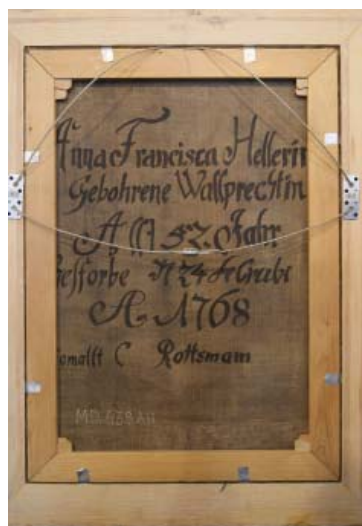 Anna Francisca Hellerin
Gebohrene Wallprechtin
57. Jahr
Gestorbe 24
A 1768
Gemallt C Rottsmann
MD.639.AH